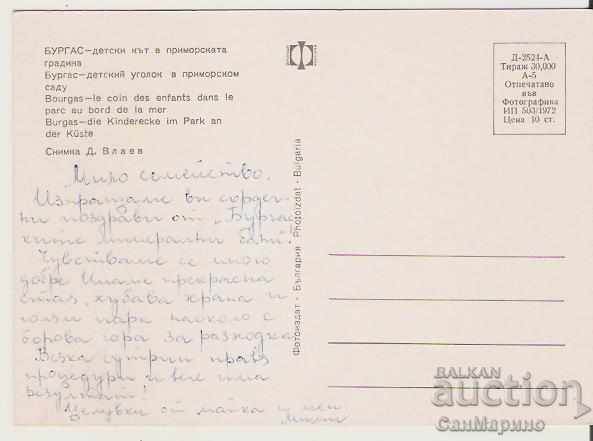 БУРГАС—детски кът в приморската
градина
Бургас—детский уголок в приморском
саду
Bourgas—le coin des enfants dans le
parc au bord de la mer
Burgas—die Kinderecke im Park an
der Küste
Снимка Д. Влаев
Д-2524-А
Тираж 30,000
А-5
Отпечатано
във
Фотографика
ИП 503/1972
Цена 10 ст.
Фотоиздат - България Photoizdat - Bulgaria
Мило семейство,
Изпращаме ви сърдеч-
ни поздрави от „Бургас
ките минерални бани"!
Чувстваме се много
добре. Имаме прекрасна
стая, хубава храна и
голям парк наоколо с
борова гора за разходка.
Всяка сутрин правя
процедури и вече има
резултат!
Целувки от майка и мен
BALKAN
auction
СанМарино